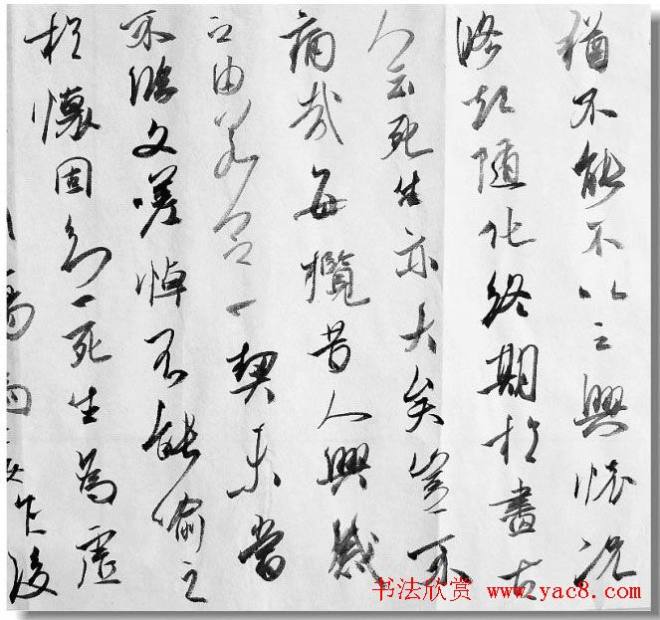 猶不能不以之興懷況
修短随化終期於盡古
人云死生亦大矣豈不
痛哉每攬昔人興感
之由若合一契未嘗
不臨文嗟悼不能喻之
於懷固知一死生為虛
作後
书法欣赏 www.yac8.com